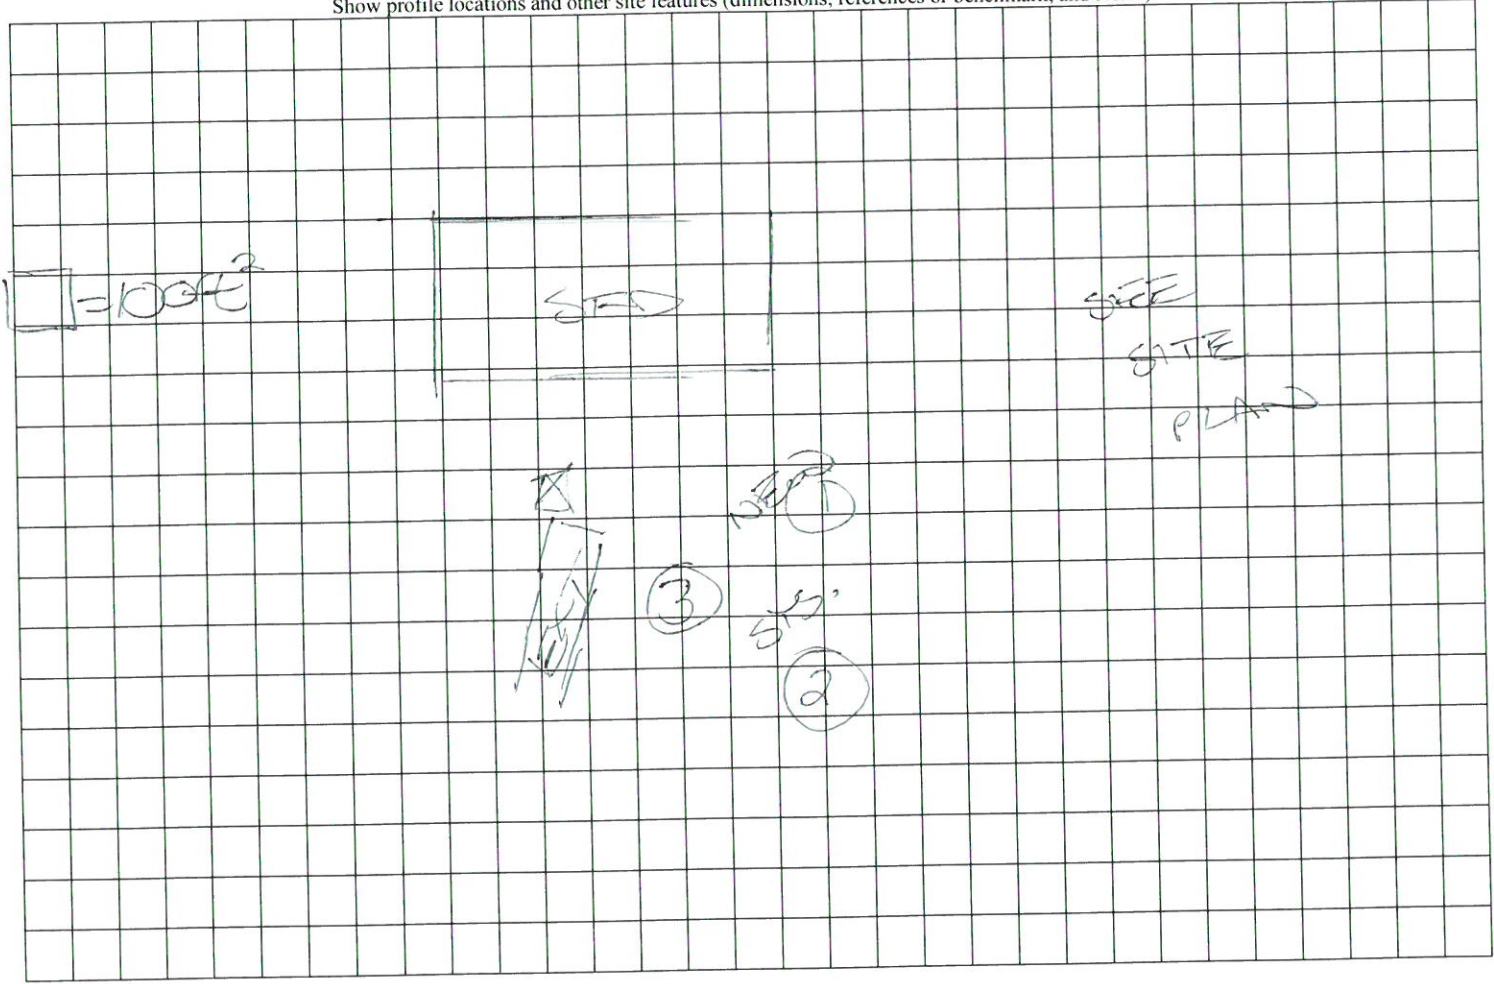 Show profile locations and other site features (dimensions, references or benchmark, and
= 100ft²
SFD
SEE
SITE
PLAN
NEW
1
3
SYS.
2